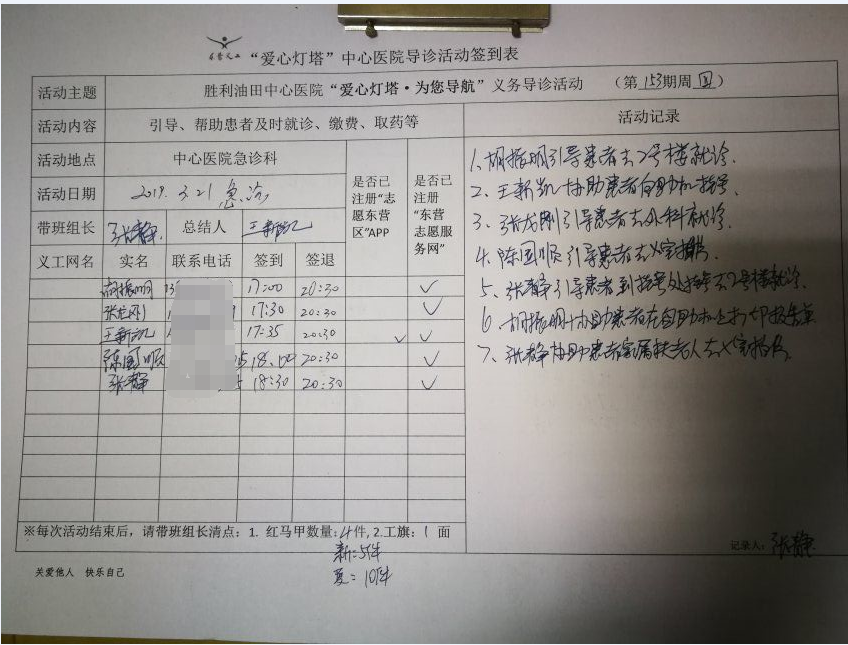 东营义工
“爱心灯塔”中心医院导诊活动签到表
活动主题 胜利油田中心医院“爱心灯塔·为您导航”义务导诊活动 (第153期周四)
活动内容 引导、帮助患者及时就诊、缴费、取药等
活动记录
活动地点 中心医院急诊科
活动日期 2019.3.21 急诊
是否已注册“志愿东营区”APP
是否已注册“东营志愿服务网”
带班组长 张静 总结人 王新凯
义工网名 实名 联系电话 签到 签退
胡振明 13 17:00 20:30 ✓
张龙刚 17:30 20:30 ✓
王新凯 17:35 20:30 ✓ ✓
陈国顺 5 18:00 20:30 ✓
张静 18:30 20:30 ✓
1、胡振明引导患者去2号楼就诊.
2、王新凯协助患者自助机挂号
3、张龙刚引导患者去外科就诊.
4、陈国顺引导患者去X室拍片
5、张静引导患者到挂号处挂号去2号楼就诊.
6、胡振明协助患者在自助机上打印报告单
7、张静协助患者家属扶老人去X室拍片.
※每次活动结束后，请带班组长清点：1. 红马甲数量:4件, 2.工旗:1面
新:5件
夏:10件
记录人: 张静
关爱他人 快乐自己